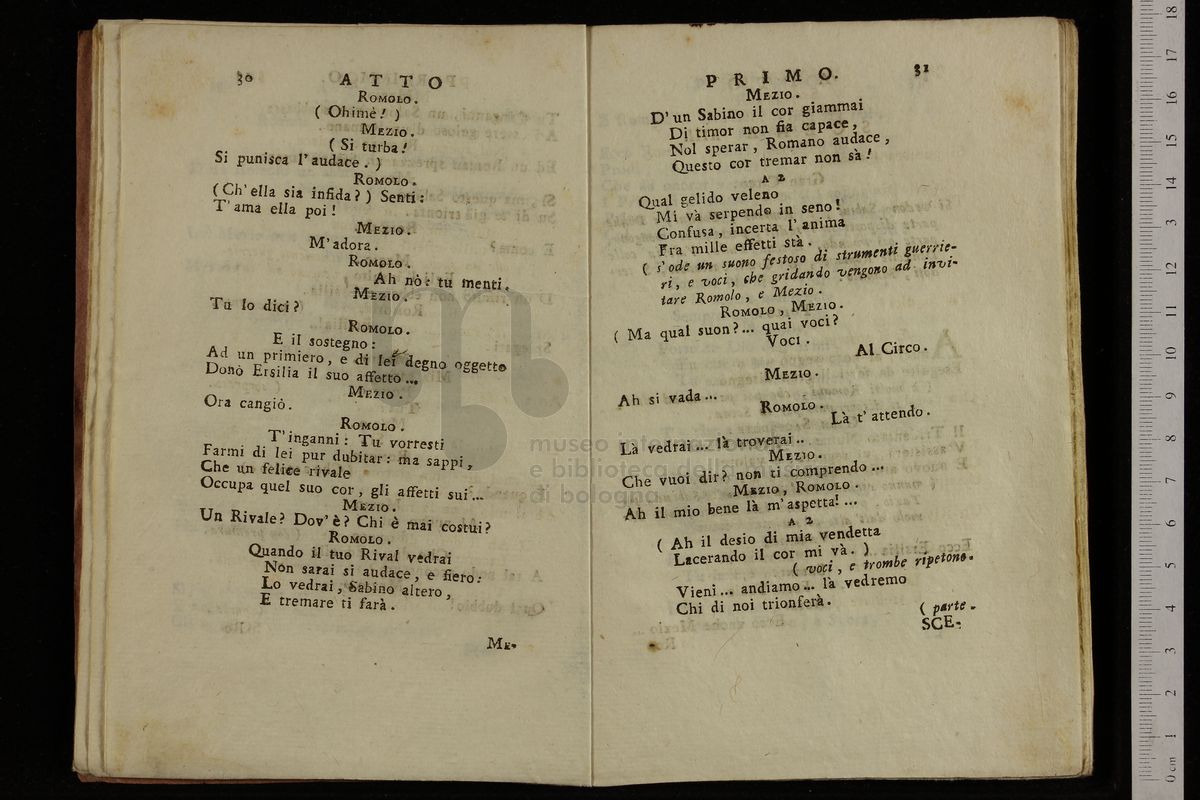 30 ATTO
ROMOLO.
( Ohimè! )
MEZIO.
( Si turba!
Si punisca l'audace. )
ROMOLO.
(Ch'ella sia infida? ) Senti:
T'ama ella poi!
MEZIO.
M'adora.
ROMOLO.
Ah nò: tu menti.
MEZIO.
Tu lo dici?
ROMOLO.
E il sostegno:
Ad un primiero, e di lei degno oggetto
Donò Ersilia il suo affetto...
MEZIO.
Ora cangiò.
ROMOLO.
T'inganni: Tu vorresti
Farmi di lei pur dubitar: ma sappi,
Che un felice rivale
Occupa quel suo cor, gli affetti sui...
MEZIO.
Un Rivale? Dov'è? Chi è mai costui?
ROMOLO.
Quando il tuo Rival vedrai
Non sarai si audace, e fiero:
Lo vedrai, Sabino altero,
E tremare ti farà.
ME-
PRIMO. 31
MEZIO.
D'un Sabino il cor giammai
Di timor non fia capace,
Nol sperar, Romano audace,
Questo cor tremar non sà!
A 2
Qual gelido veleno
Mi và serpendo in seno!
Confusa, incerta l'anima
Fra mille effetti stà.
( s'ode un suono festoso di strumenti guerrie-
ri, e voci, che gridando vengono ad invi-
tare Romolo, e Mezio.
ROMOLO, MEZIO.
( Ma qual suon?... quai voci?
VOCI.
Al Circo.
MEZIO.
Ah si vada...
ROMOLO.
Là t'attendo.
Là vedrai... là troverai..
MEZIO.
Che vuoi dir? non ti comprendo...
MEZIO, ROMOLO.
Ah il mio bene là m'aspetta!...
A 2
( Ah il desio di mia vendetta
Lacerando il cor mi và. )
( voci, e trombe ripetono.
Vieni... andiamo... là vedremo
Chi di noi trionferà.
( parte.
SCE-
museo internazionale
e biblioteca della musica
di bologna
0 cm 1 2 3 4 5 6 7 8 9 10 11 12 13 14 15 16 17 18